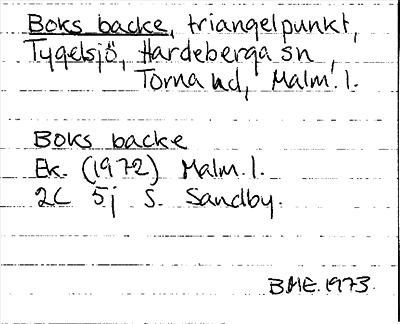 Boks backe, triangelpunkt,
Tygelsjö, Hardeberga sn,
Torna hd, Malm. l.
Boks backe
Ek. (1972) Malm. l.
2C 5j S. Sandby.
BME.1973.